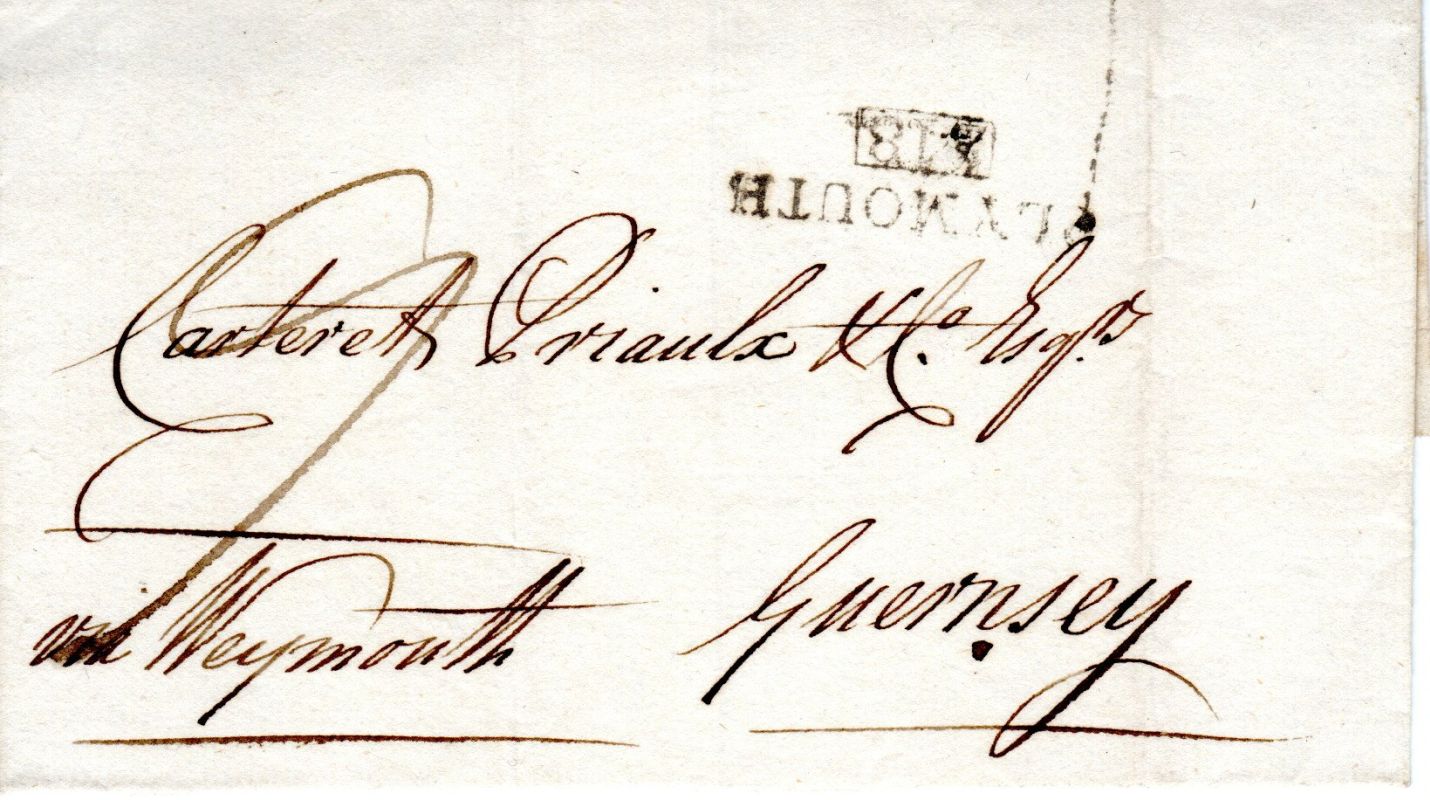 PLYMOUTH
Carteret Priaulx & Co. Esqrs
via Weymouth
Guernsey